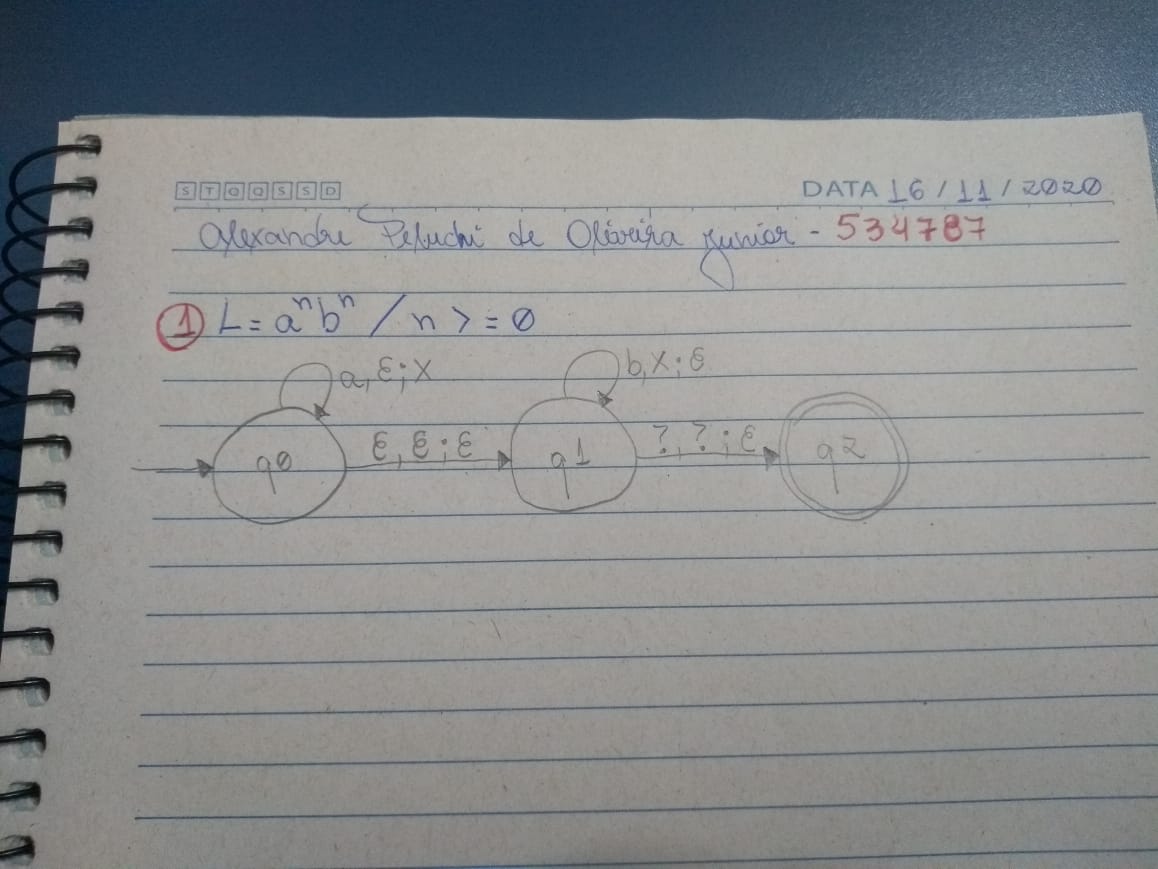 S T Q Q S S D DATA 16/11/2020
Alexandre Peluchi de Oliveira Junior - 534787
1 L = aⁿbⁿ / n >= 0
a, ε; X b, X; ε
q0 ε, ε; ε q1 ?, ?; ε q2